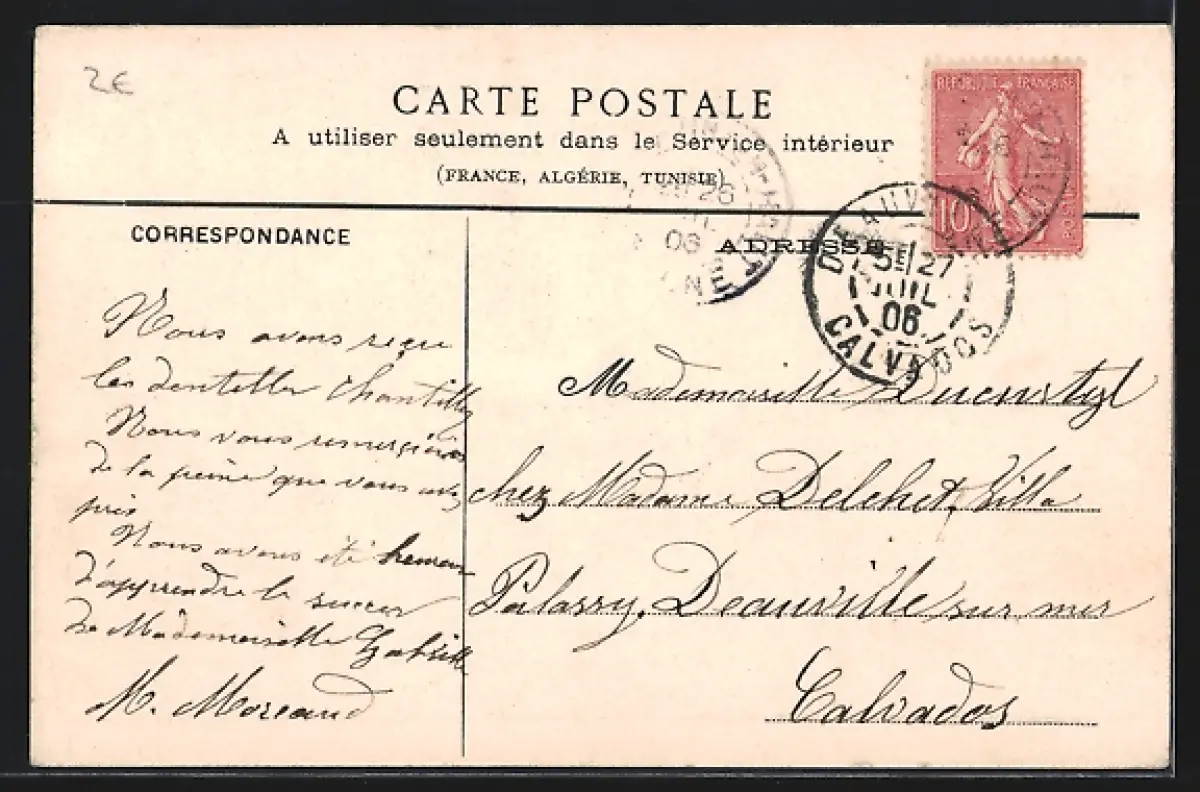 2€
CARTE POSTALE
A utiliser seulement dans le Service intérieur
(FRANCE, ALGÉRIE, TUNISIE)
REPUBLIQUE FRANÇAISE
10
POSTES
26
06
DEAUVILLE
5E/27
JUIL
06
CALVADOS
CORRESPONDANCE
ADRESSE
Nous avons reçu
les dentelles Chantilly
Nous vous remercions
de la peine que vous avez
pris
Nous avons été heureux
d'apprendre le succès
de Mademoiselle Gabrielle
M. Moreaud
Mademoiselle
chez Madame Delchet, Villa
Palassy, Deauville sur mer
Calvados